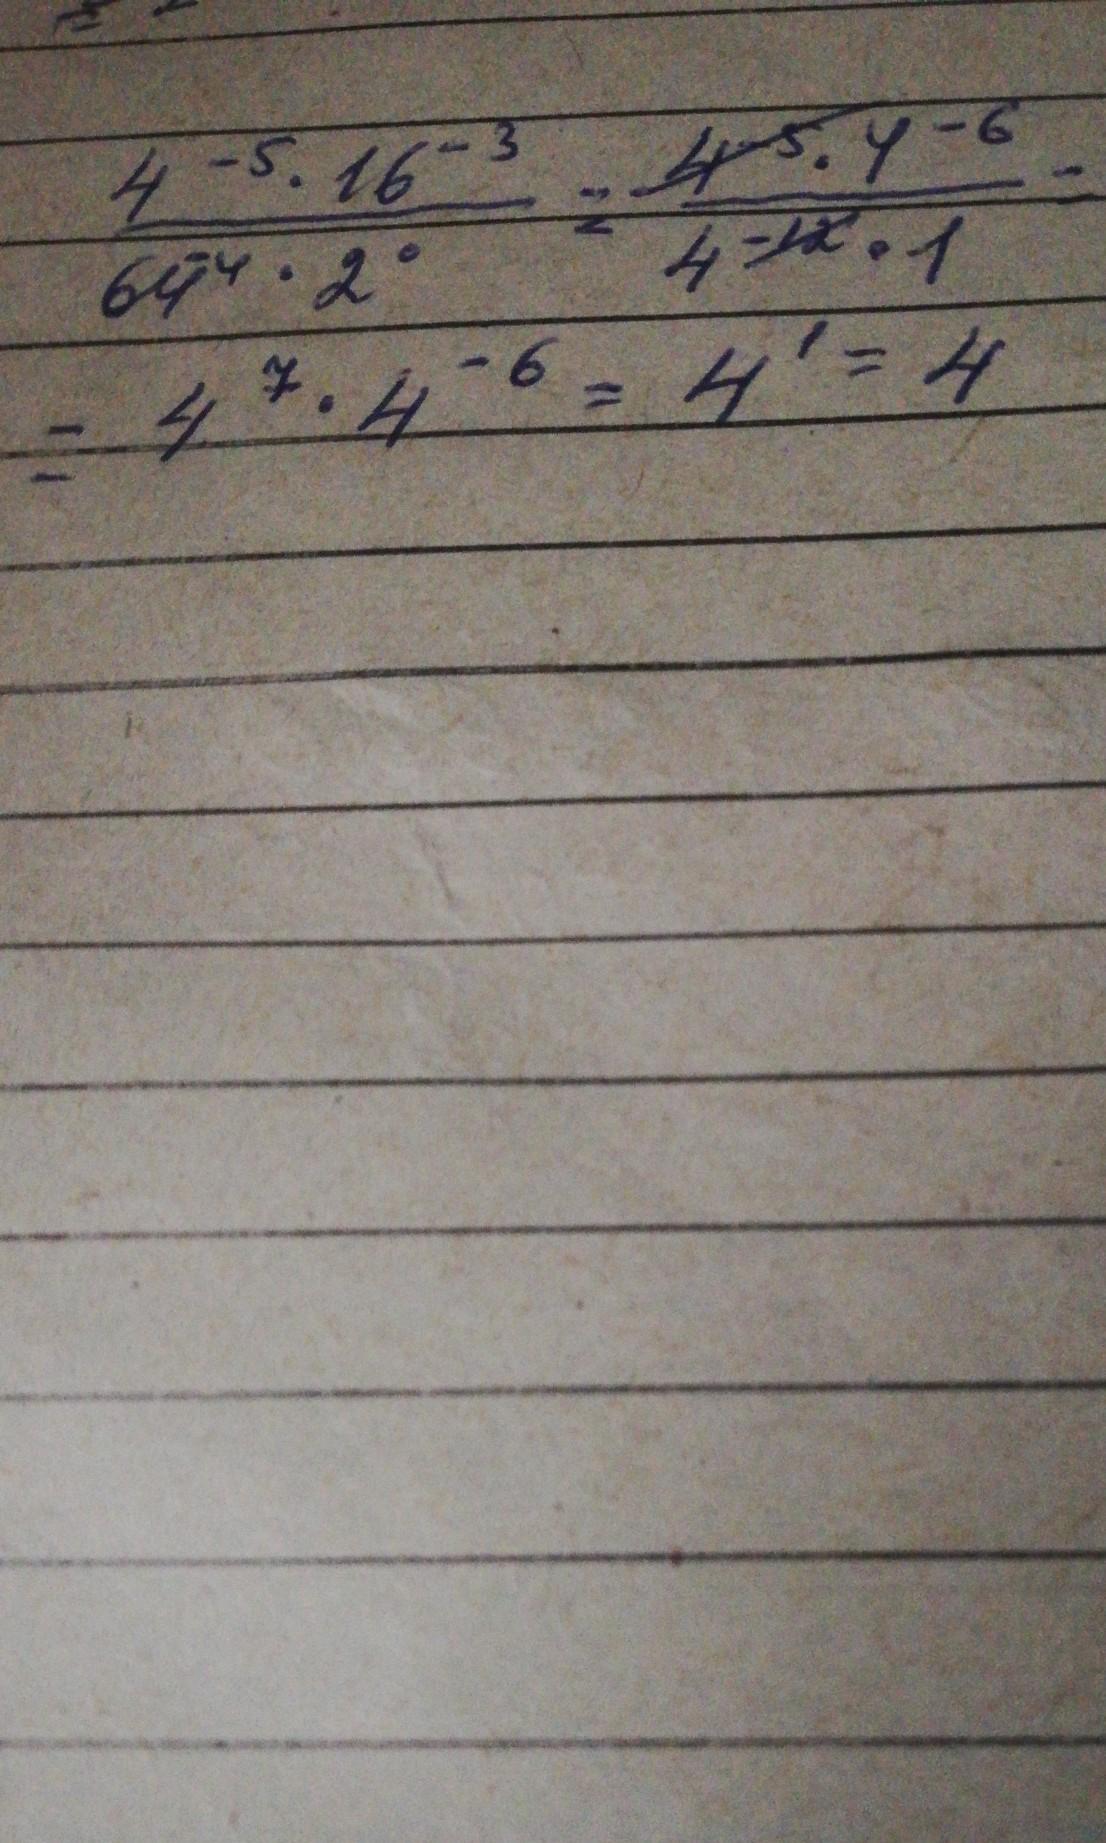 4⁻⁵ · 16⁻³ / 64⁻⁴ · 2⁰ = 4⁻⁵ · 4⁻⁶ / 4⁻¹² · 1 =
= 4⁷ · 4⁻⁶ = 4¹ = 4